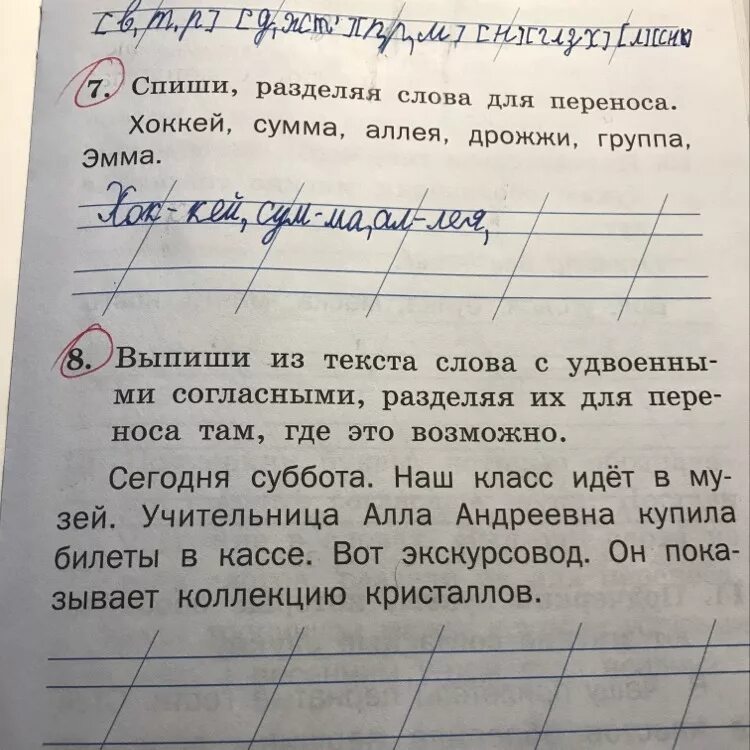 7. Спиши, разделяя слова для переноса.
Хоккей, сумма, аллея, дрожжи, группа,
Эмма.
Хок-кей, сум-ма, ал-лея,
8. Выпиши из текста слова с удвоенны-
ми согласными, разделяя их для пере-
носа там, где это возможно.
Сегодня суббота. Наш класс идёт в му-
зей. Учительница Алла Андреевна купила
билеты в кассе. Вот экскурсовод. Он пока-
зывает коллекцию кристаллов.